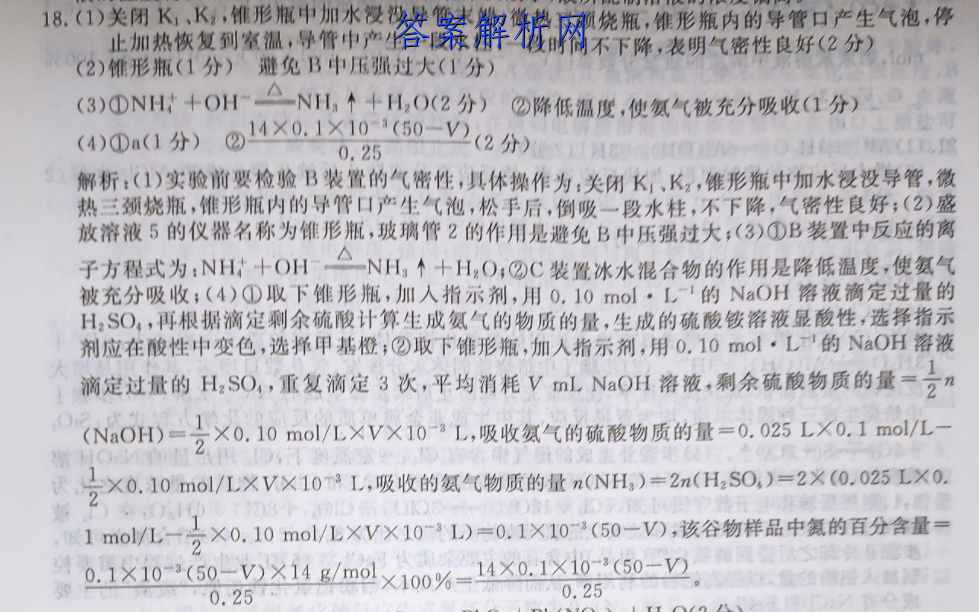 18.(1)关闭 K₁、K₂,锥形瓶中加水浸没导管,微热三颈烧瓶,锥形瓶内的导管口产生气泡,停
止加热恢复到室温,导管中产生一段 一段时间不下降,表明气密性良好(2 分)
答案解析网
(2)锥形瓶(1 分) 避免 B 中压强过大(1 分)
(3)①NH₄⁺+OH⁻ =△= NH₃↑+H₂O(2 分) ②降低温度,使氨气被充分吸收(1 分)
(4)①a(1 分) ②14×0.1×10⁻³(50-V)/0.25(2 分)
解析:(1)实验前要检验 B 装置的气密性,具体操作为:关闭 K₁、K₂,锥形瓶中加水浸没导管,微
热三颈烧瓶,锥形瓶内的导管口产生气泡,松手后,倒吸一段水柱,不下降,气密性良好;(2)盛
放溶液 5 的仪器名称为锥形瓶,玻璃管 2 的作用是避免 B 中压强过大;(3)①B 装置中反应的离
子方程式为:NH₄⁺+OH⁻ =△= NH₃↑+H₂O;②C 装置冰水混合物的作用是降低温度,使氨气
被充分吸收;(4)①取下锥形瓶,加入指示剂,用 0.10 mol·L⁻¹的 NaOH 溶液滴定过量的
H₂SO₄,再根据滴定剩余硫酸计算生成氨气的物质的量,生成的硫酸铵溶液显酸性,选择指示
剂应在酸性中变色,选择甲基橙;②取下锥形瓶,加入指示剂,用 0.10 mol·L⁻¹的 NaOH 溶液
滴定过量的 H₂SO₄,重复滴定 3 次,平均消耗 V mL NaOH 溶液,剩余硫酸物质的量=1/2 n
(NaOH)=1/2×0.10 mol/L×V×10⁻³ L,吸收氨气的硫酸物质的量=0.025 L×0.1 mol/L-
1/2×0.10 mol/L×V×10⁻³ L,吸收的氨气物质的量 n(NH₃)=2n(H₂SO₄)=2×(0.025 L×0.
1 mol/L-1/2×0.10 mol/L×V×10⁻³ L)=0.1×10⁻³(50-V),该谷物样品中氮的百分含量=
0.1×10⁻³(50-V)×14 g/mol/0.25×100%=14×0.1×10⁻³(50-V)/0.25。